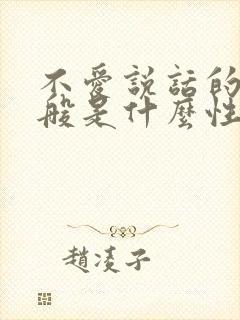 不愛說話的
般是什麼性
趙凌子